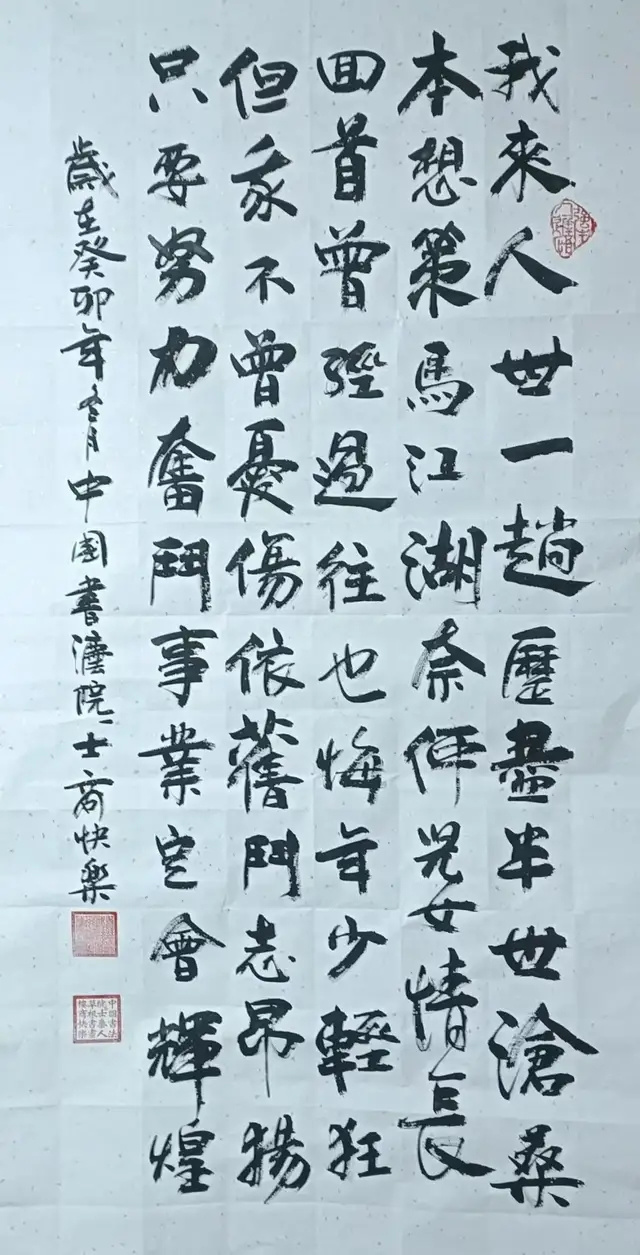 我来人世一趟歷盡半世滄桑
本想策馬江湖奈何兒女情長
回首曾經過往也悔年少輕狂
但我不曾憂傷依舊鬥志昂揚
只要努力奮鬥事業定會輝煌
歲在癸卯年冬月中國書法院院士商快樂
中国书法
院士泰人
草根书畫
樓商快樂